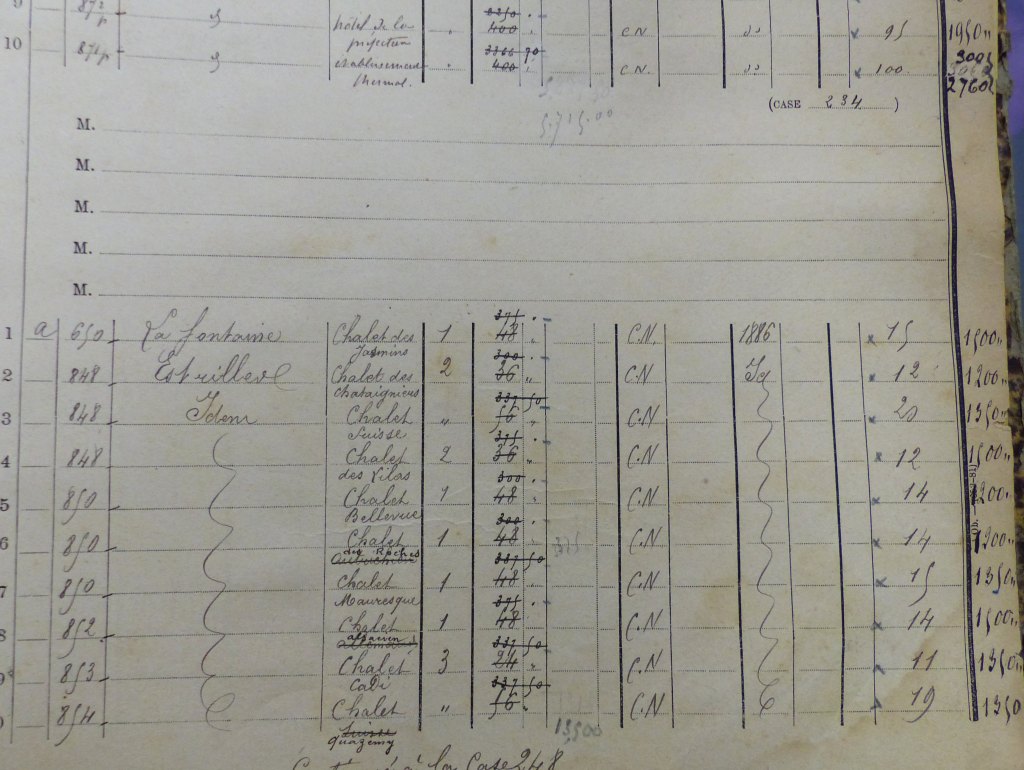 9 872 p d° 2250 "
hôtel de la 400 " C.N. d° x 95 1950 "
préfecture
10 871 p d° 3366 70 3005
établissement 400 " C.N. d° x 100
thermal. 2760
(CASE 234)
5.715.00
M.
M.
M.
M.
M.
375 "
1 a 650 La fontaine Chalet des 1 48 " C.N. 1886 x 15 1500 "
Jasmins 300 "
2 848 Chalet des 2 36 " C.N Id x 12 1200 "
chataigniers 337 50
3 848 Idem Chalet " 56 " C.N x 20 1350 "
Suisse 375 "
4 848 Chalet 2 36 " C.N x 12 1500 "
des Lilas 300 "
5 850 Chalet 1 48 " C.N x 14 1200 "
Bellevue 300 "
6 850 Chalet 1 48 " 375 C.N x 14 1200 "
des Roches 337 50
7 850 Chalet 1 48 " C.N x 15 1350 "
Mauresque 375 "
8 852 Chalet 1 48 " C.N x 14 1500 "
337 50
9 853 Chalet 3 24 " C.N x 11 1350 "
337 50
854 Chalet " 56 " C.N 19 1350
Suisse 13500
à la Case 248